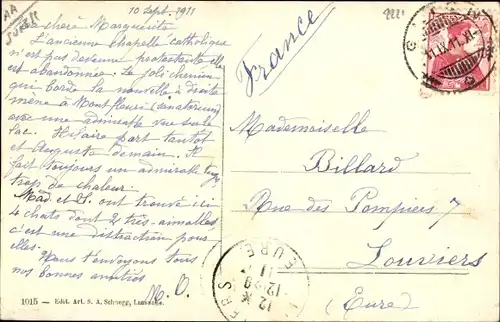 10 Sept. 1911
Ma chère Marguerite
L'ancienne chapelle catholique
n'est pas devenue protestante elle
est abandonnée. Le joli chemin
qui borde la nouvelle à droite
mène à Mont fleuri (sanatorium)
avec une admirable vue sur le
lac. Hilaire part tantôt
et Auguste demain. Il
fait toujours un admirable temps
trop de chaleur.
Mad. et ont trouvé ici
4 chats dont 2 très-aimables
c'est une distraction pour
elles.
Nous t'envoyons tous
nos bonnes amitiés
M. O.
1015 – Edit. Art. S. A. Schnegg, Lausanne.
France
Mademoiselle
Billard
Rue des Pompiers 7
Louviers
(Eure)
11.IX.11.XI
EURE